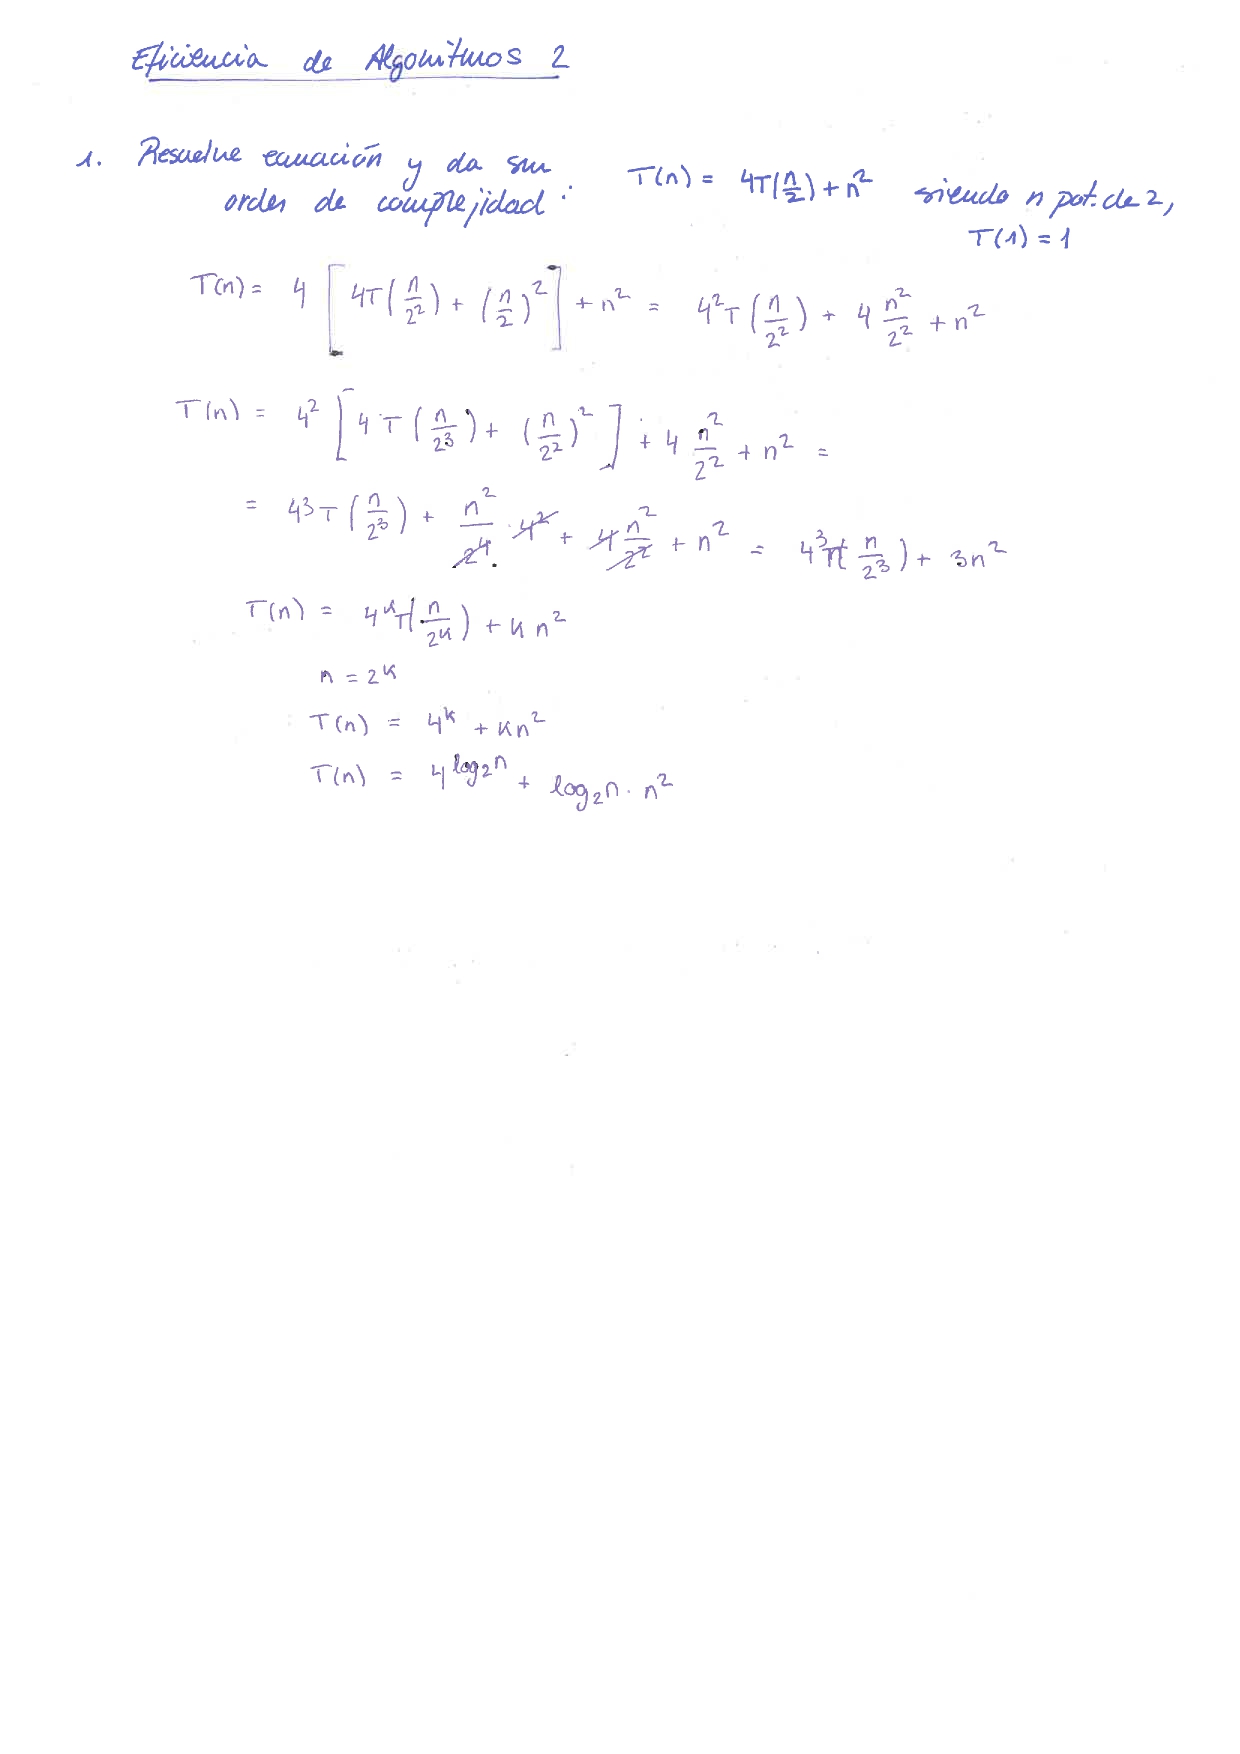 Eficiencia de Algoritmos 2
1. Resuelve ecuación y da su orden de complejidad: T(n) = 4T(n/2) + n² siendo n pot. de 2,
T(1) = 1
T(n) = 4 [4T(n/2²) + (n/2)²] + n² = 4²T(n/2²) + 4 n²/2² + n²
T(n) = 4² [4T(n/2³) + (n/2²)²] + 4 n²/2² + n² =
= 4³T(n/2³) + n²/2⁴ · 4² + 4 n²/2² + n² = 4³T(n/2³) + 3n²
T(n) = 4ᵏT(n/2ᵏ) + kn²
n = 2ᵏ
T(n) = 4ᵏ + kn²
T(n) = 4^(log₂n) + log₂n · n²